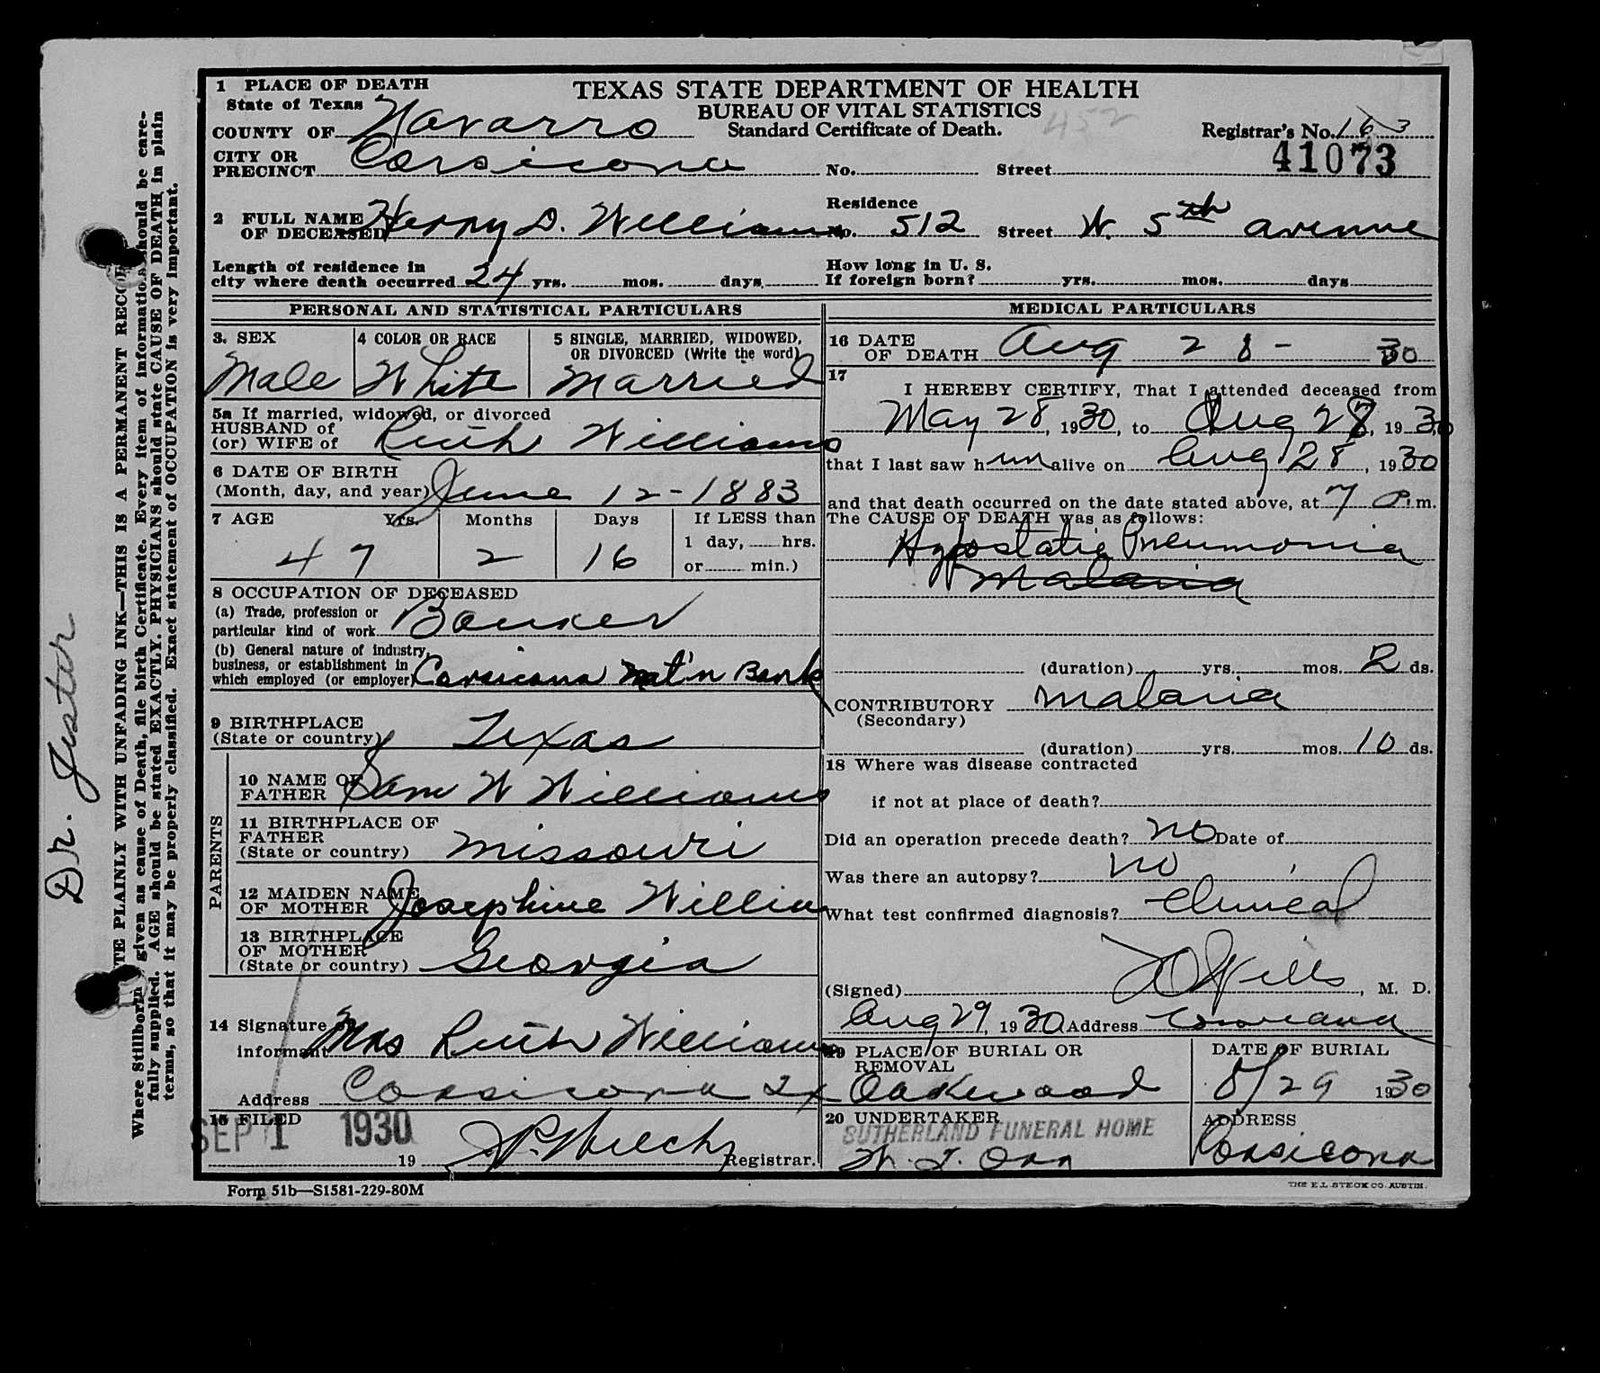 1 PLACE OF DEATH
State of Texas
COUNTY OF Navarro
CITY OR
PRECINCT Corsicana
TEXAS STATE DEPARTMENT OF HEALTH
BUREAU OF VITAL STATISTICS
Standard Certificate of Death.
452
Registrar's No. 163
41073
No. Street
2 FULL NAME
OF DECEASED Henry D. Williams
Residence
No. 512 Street W. 5th avenue
Length of residence in
city where death occurred 24 yrs. mos. days.
How long in U. S.
If foreign born? yrs. mos. days
PERSONAL AND STATISTICAL PARTICULARS
3. SEX
Male
4 COLOR OR RACE
White
5 SINGLE, MARRIED, WIDOWED,
OR DIVORCED (Write the word)
Married
5a If married, widowed, or divorced
HUSBAND of
(or) WIFE of Ruth Williams
6 DATE OF BIRTH
(Month, day, and year) June 12-1883
7 AGE Yrs. Months Days If LESS than
1 day, hrs.
or min.)
47 2 16
8 OCCUPATION OF DECEASED
(a) Trade, profession or
particular kind of work Banker
(b) General nature of industry,
business, or establishment in
which employed (or employer) Corsicana Nat'n Bank
9 BIRTHPLACE
(State or country) Texas
PARENTS
10 NAME OF
FATHER Sam W Williams
11 BIRTHPLACE OF
FATHER
(State or country) Missouri
12 MAIDEN NAME
OF MOTHER Josephine Williams
13 BIRTHPLACE
OF MOTHER
(State or country) Georgia
14 Signature
informant Mrs Ruth Williams
Address Corsicana Tx
15 FILED
SEP 1 1930
19 Registrar.
MEDICAL PARTICULARS
16 DATE
OF DEATH Aug 28 - 30
17
I HEREBY CERTIFY, That I attended deceased from
May 28, 1930, to Aug 28, 1930
that I last saw him alive on Aug 28, 1930
and that death occurred on the date stated above, at 7 P. m.
The CAUSE OF DEATH was as follows:
Hypostatic Pneumonia
Malaria
(duration) yrs. mos. 2 ds.
CONTRIBUTORY malaria
(Secondary)
(duration) yrs. mos. 10 ds.
18 Where was disease contracted
if not at place of death?
Did an operation precede death? no Date of
Was there an autopsy? no
What test confirmed diagnosis? Clinical
(Signed) , M. D.
Aug 29, 1930 Address Corsicana
19 PLACE OF BURIAL OR
REMOVAL
Oakwood
DATE OF BURIAL
8/29 1930
20 UNDERTAKER
SUTHERLAND FUNERAL HOME
ADDRESS
Corsicana
Form 51b—S1581-229-80M
THE E.L. STECK CO. AUSTIN.
Dr. Jester
TE PLAINLY WITH UNFADING INK—THIS IS A PERMANENT RECO
Where Stillborn given as cause of Death, file birth Certificate. Every item of information should be care-
fully supplied. AGE should be stated EXACTLY. PHYSICIANS should state CAUSE OF DEATH in plain
terms, so that it may be properly classified. Exact statement of OCCUPATION is very important.